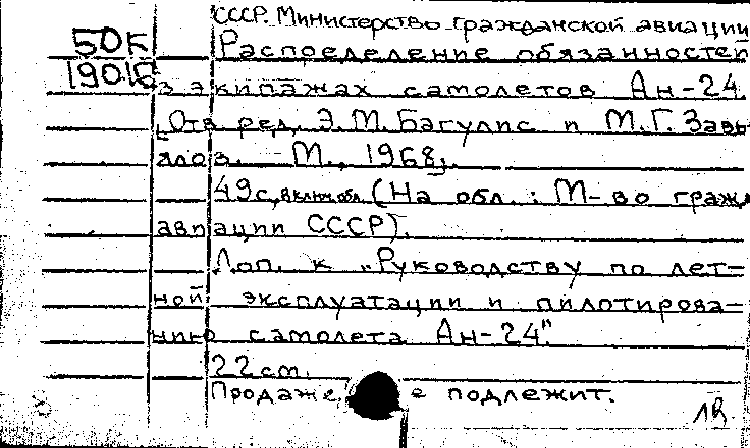 СССР. Министерство гражданской авиации
50к Распределение обязанностей
19016 в экипажах самолетов Ан-24.
[Отв. ред. Э.М. Багулис и М.Г. Завь-
ялов. — М., 1968].
49с, включ. обл. (На обл.: М-во граж.
авиации СССР).
Доп. к "Руководству по лет-
ной эксплуатации и пилотирова-
нию самолета Ан-24".
22 см.
Продаже не подлежит.